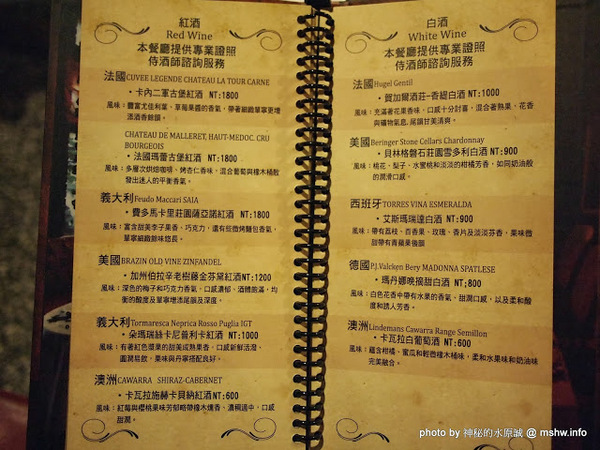 紅酒
Red Wine
本餐廳提供專業證照
侍酒師諮詢服務
法國CUVEE LEGENDE CHATEAU LA TOUR CARNE
・卡內二軍古堡紅酒 NT:1800
風味：豐富尤佳利葉、草莓果醬的香氣，帶著細緻單寧更增
添酒香餘韻。
CHATEAU DE MALLERET, HAUT-MEDOC. CRU
BOURGEOIS
・法國瑪蕾古堡紅酒 NT:1800
風味：多層次烘焙咖啡、烤杏仁香味，混合葡萄與橡木桶散
發出迷人的平衡香氣。
義大利Feudo Maccari SAIA
・費多馬卡里莊園薩亞諾紅酒 NT:1800
風味：富含甜美李子果香、巧克力，還有些微烤麵包香氣，
單寧細緻餘味悠長。
美國BRAZIN OLD VINE ZINFANDEL
・加州伯拉辛老樹藤金芬黛紅酒NT:1200
風味：深色的梅子和巧克力香氣，口感濃郁、酒體飽滿，均
衡的酸度及單寧增添尾韻及深度。
義大利Tormaresca Neprica Rosso Puglia IGT
・朵瑪瑞絲卡尼普利卡紅酒 NT:1000
風味：有著紅色漿果的甜美成熟果香。口感新鮮活潑、
圓潤易飲，果味與丹寧搭配良好。
澳洲CAWARRA SHIRAZ-CABERNET
・卡瓦拉施赫卡貝納紅酒NT:600
風味：紅莓與櫻桃果味芳郁略帶橡木燻香、濃稠適中，口感
甜潤。
白酒
White Wine
本餐廳提供專業證照
侍酒師諮詢服務
法國Hugel Gentil
・賀加爾酒莊-香緹白酒 NT:1000
風味：充滿著花果香味，口感十分討喜，混合著熟果、花香
與礦物氣息，尾韻甘美清爽。
美國Beringer Stone Cellars Chardonnay
・貝林格磐石莊園雪多利白酒 NT:900
風味：桃花、梨子、水蜜桃和淡淡的柑橘芳香，如同奶油般
的潤滑口感。
西班牙TORRES VINA ESMERALDA
・艾斯瑪瑞達白酒 NT:900
風味：帶有荔枝、百香果、玫瑰、香片及淡淡芬香、果味微
甜帶有青蘋果後韻
德國P.J.Valcken Bery MADONNA SPATLESE
・瑪丹娜晚摘甜白酒 NT:800
風味：白色花香中帶有水果的香氣，甜潤口感，以及柔和酸
度和誘人芳香。
澳洲Lindemans Cawarra Range Semillon
・卡瓦拉白葡萄酒 NT:600
風味：蘊含柑橘、蜜瓜和輕微橡木桶味，柔和水果味和奶油味
完美融合。
photo by 神秘的水原誠 @ mshw.info